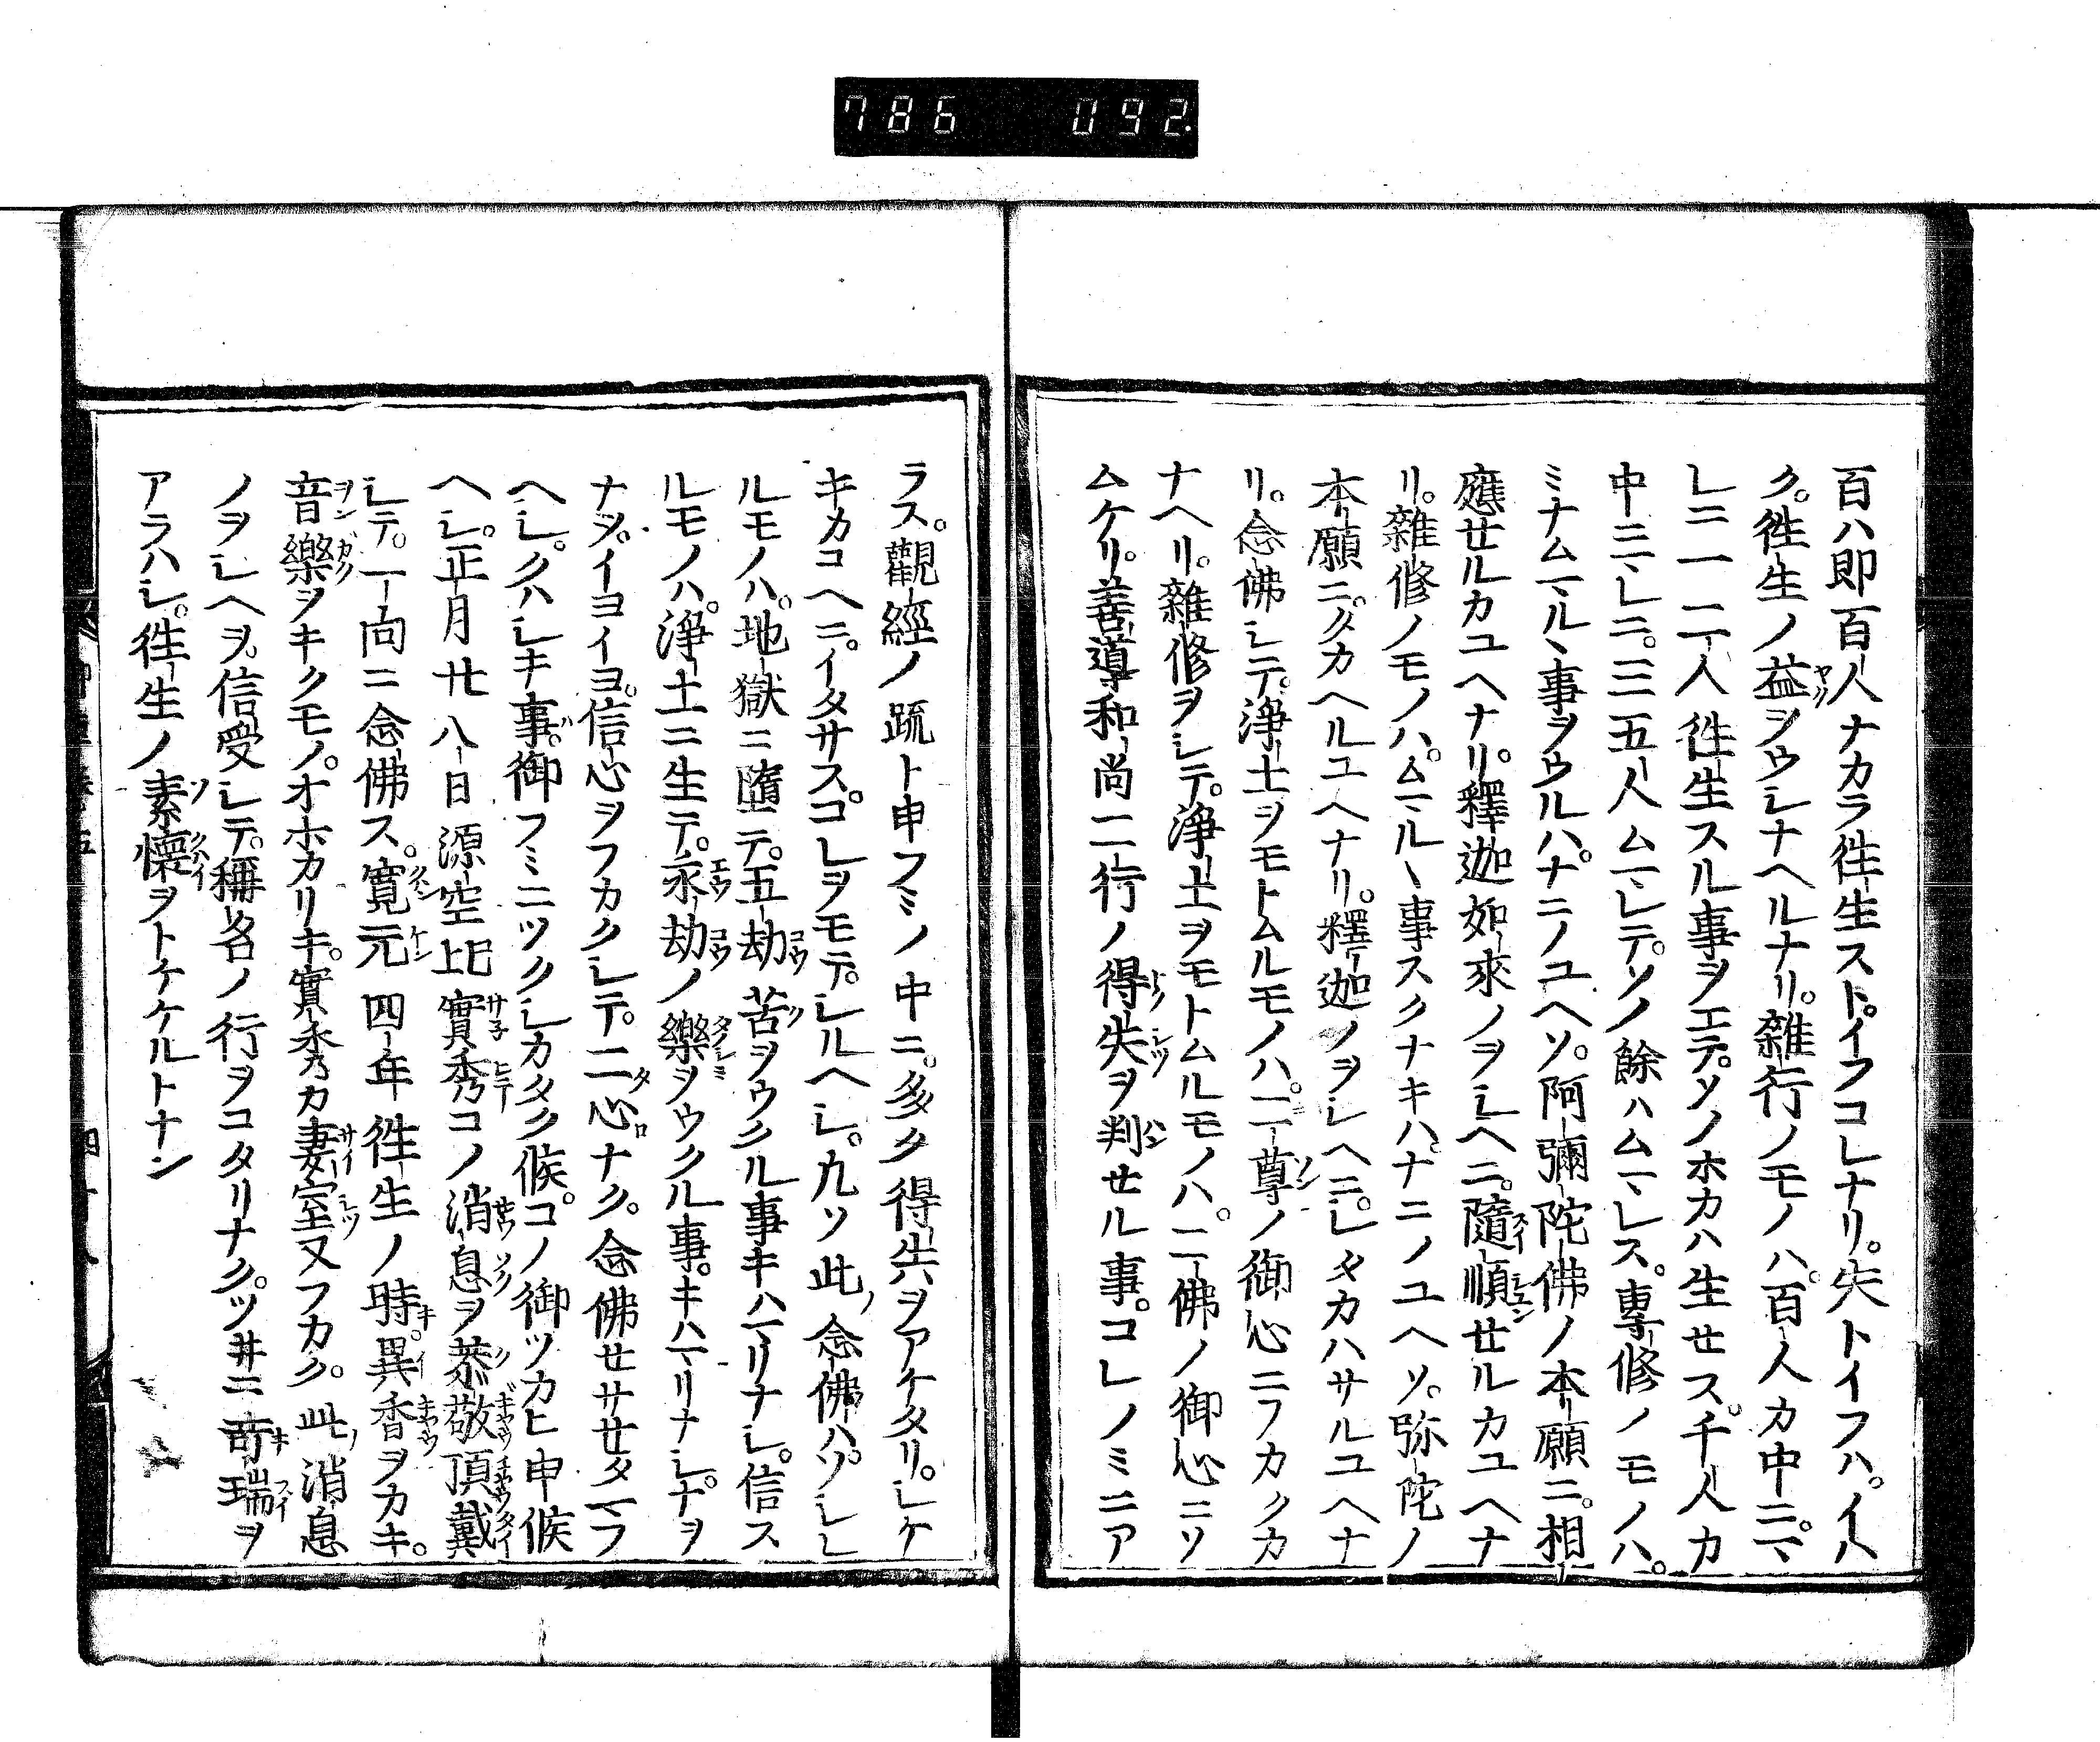 786 092
百ハ即百人ナカラ徃生スト。イフコレナリ。失トイフハ。イハ
ク。徃生ノ益ヲウシナヘルナリ。雜行ノモノハ。百人カ中ニ。マヽ
レニ一二人徃生スル事ヲエテ。ソノホカハ生セス。千人カ
中ニ。マヽレニ。三五人ムマヽレテ。ソノ餘ハムマヽレス。專修ノモノハ。
ミナムマルヽ事ヲウルハ。ナニノユヘソ。阿彌陀佛ノ本願ニ。相
應セルカユヘナリ。釋迦如來ノヲシヘニ。隨順セルカユヘナ
リ。雜修ノモノハ。ムマルヽ事スクナキハ。ナニノユヘソ。弥陀ノ
本願ニ。タカヘルユヘナリ。釋迦ノヲシヘニ。シタカハサルユヘナ
リ。念佛シテ。淨土ヲモトムルモノハ。二尊ノ御心ニフカクカ
ナヘリ。雜修ヲシテ。淨土ヲモトムルモノハ。二佛ノ御心ニソ
ムケリ。善導和尚二行ノ得失ヲ判セル事。コレノミニア
ラス。觀經ノ疏ト申フミノ中ニ。多ク得失ヲアケタリ。シケ
キカコヘニ。イタサス。コレヲモテ。シルヘシ。九ソ此ノ念佛ハ。ソシレ
ルモノハ。地獄ニ墮テ。五劫苦ヲウクル事キハマリナシ。信ス
ルモノハ。淨土ニ生テ。永劫ノ樂ヲウクル事。キハマリナシ。ナヲ
ナヲ。イヨイヨ。信心ヲフカクシテ。二心ナク。念佛セサセタマフ
ヘシ。クハシキ事。御フミニツクシカタク候。コノ御ツカヒ申候
ヘシ。正月廿八日源空比實秀コノ消息ヲ恭敬頂戴
シテ。一向ニ念佛ス。寛元四年徃生ノ時異香ヲカキ。
音樂ヲキクモノ。オホカリキ。實秀カ妻室又フカク。此ノ消息
ノヲシヘヲ。信受シテ。稱名ノ行ヲコタリナク。ツ井ニ奇瑞ヲ
アラハシ。徃生ノ素懷ヲトケケルトナン